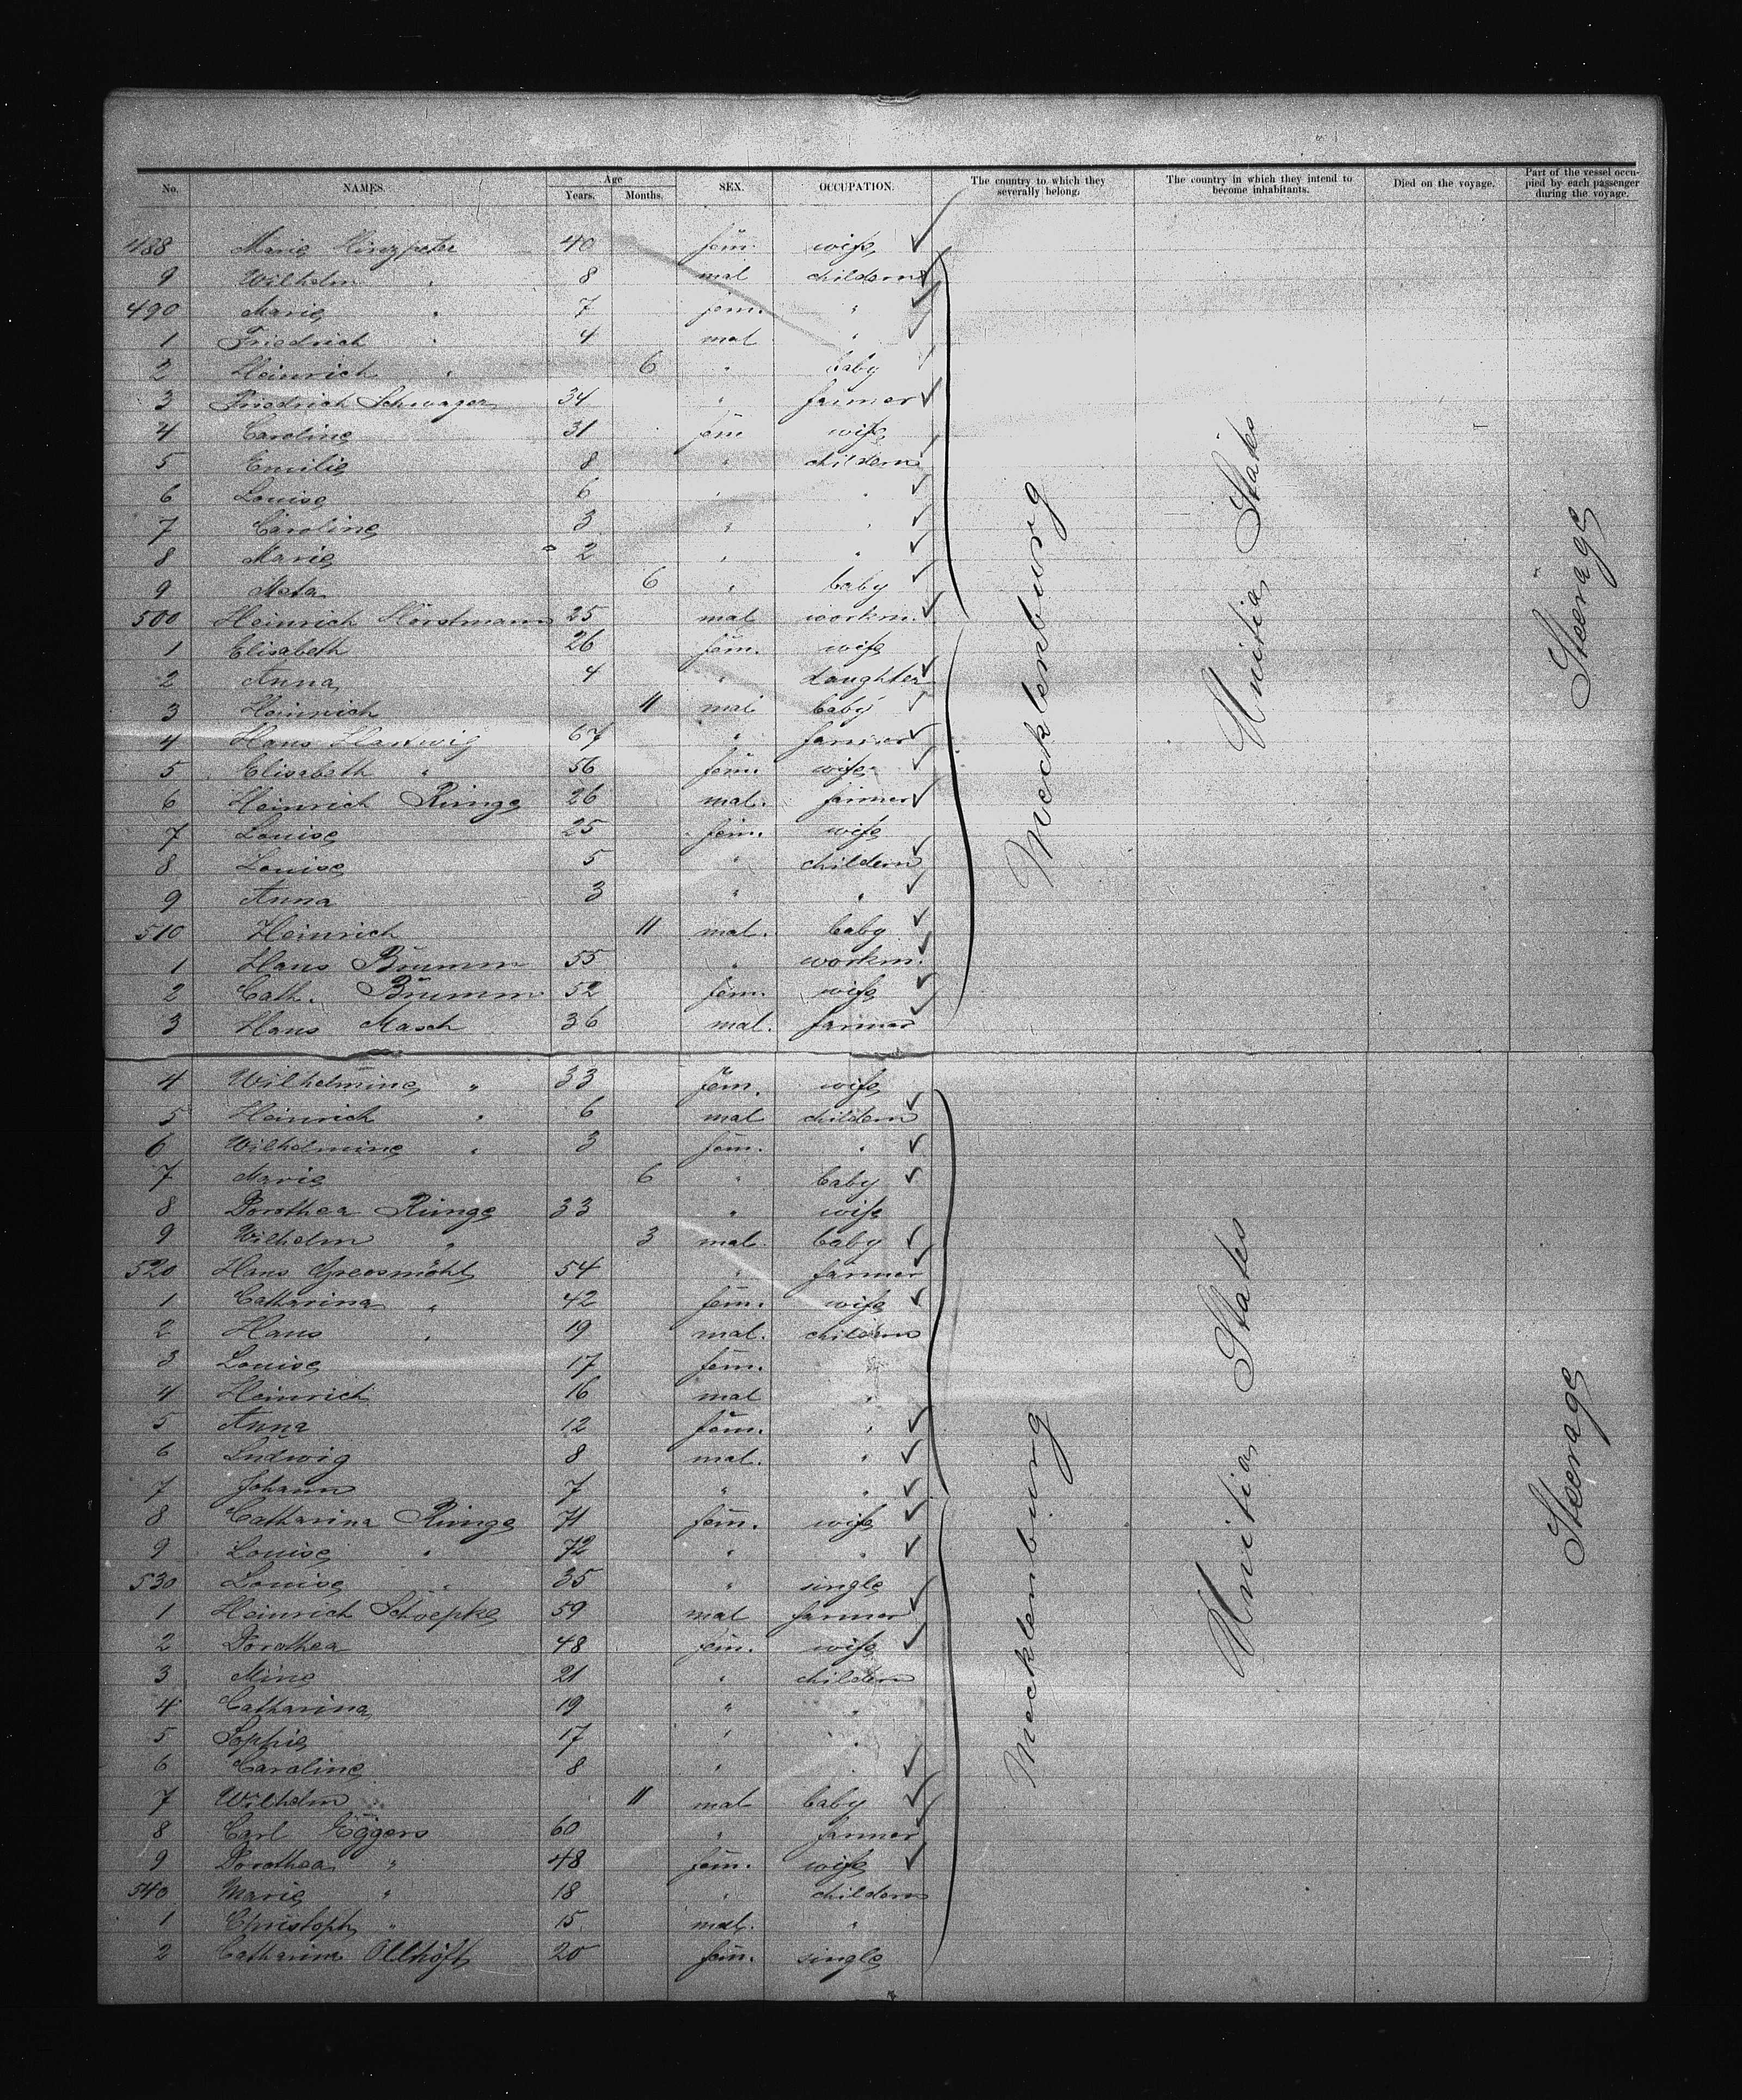 No. NAMES. Age Years. Months. SEX. OCCUPATION. The country to which they severally belong. The country in which they intend to become inhabitants. Died on the voyage. Part of the vessel occupied by each passenger during the voyage.
488 Marie Hinzpeter 40 fem. wife
9 Wilhelm " 8 mal childern
490 Marie " 7 fem. "
1 Friedrich " 4 mal "
2 Heinrich " 6 " baby
3 Friedrich Schwager 34 " farmer
4 Caroline 31 fem wife
5 Emilie 8 " childern
6 Louise 6 " "
7 Caroline 3 " "
8 Marie 2 " "
9 Meta 6 " baby
500 Heinrich Horstmann 25 mal workm.
1 Elisabeth 26 fem. wife
2 Anna 4 " daughter
3 Heinrich 11 mal baby
4 Hans Hartwig 67 " farmer
5 Elisabeth " 56 fem. wife
6 Heinrich Runge 26 mal. farmer
7 Louise 25 fem. wife
8 Louise 5 " childern
9 Anna 3 " "
510 Heinrich 11 mal. baby
1 Hans Brumm 55 " workm.
2 Cath. Brumm 52 fem. wife
3 Hans Masch 36 mal. farmer
Mecklenburg
Unitia States
Steerage
4 Wilhelmine " 33 fem. wife
5 Heinrich " 6 mal childern
6 Wilhelmine " 3 fem. "
7 Marie 6 " baby
8 Dorothea Runge 33 " wife
9 Wilhelm " 3 mal. baby
520 Hans Greesmöhl 54 " farmer
1 Catharina " 42 fem. wife
2 Hans " 19 mal. childern
3 Louise 17 fem. "
4 Heinrich 16 mal "
5 Anna 12 fem. "
6 Ludwig 8 mal. "
7 Johann 7 " "
8 Catharina Runge 71 fem. wife
9 Louise " 72 " "
530 Louise " 35 " single
1 Heinrich Schoepke 59 mal farmer
2 Dorothea 48 fem. wife
3 Mine 21 " childern
4 Catharina 19 " "
5 Sophie 17 " "
6 Caroline 8 " "
7 Wilhelm 11 mal baby
8 Carl Eggers 60 " farmer
9 Dorothea " 48 fem. wife
540 Marie " 18 " childern
1 Christoph " 15 mal. "
2 Catharina Ollhöft 20 fem. single
Mecklenburg
Unitia States
Steerage